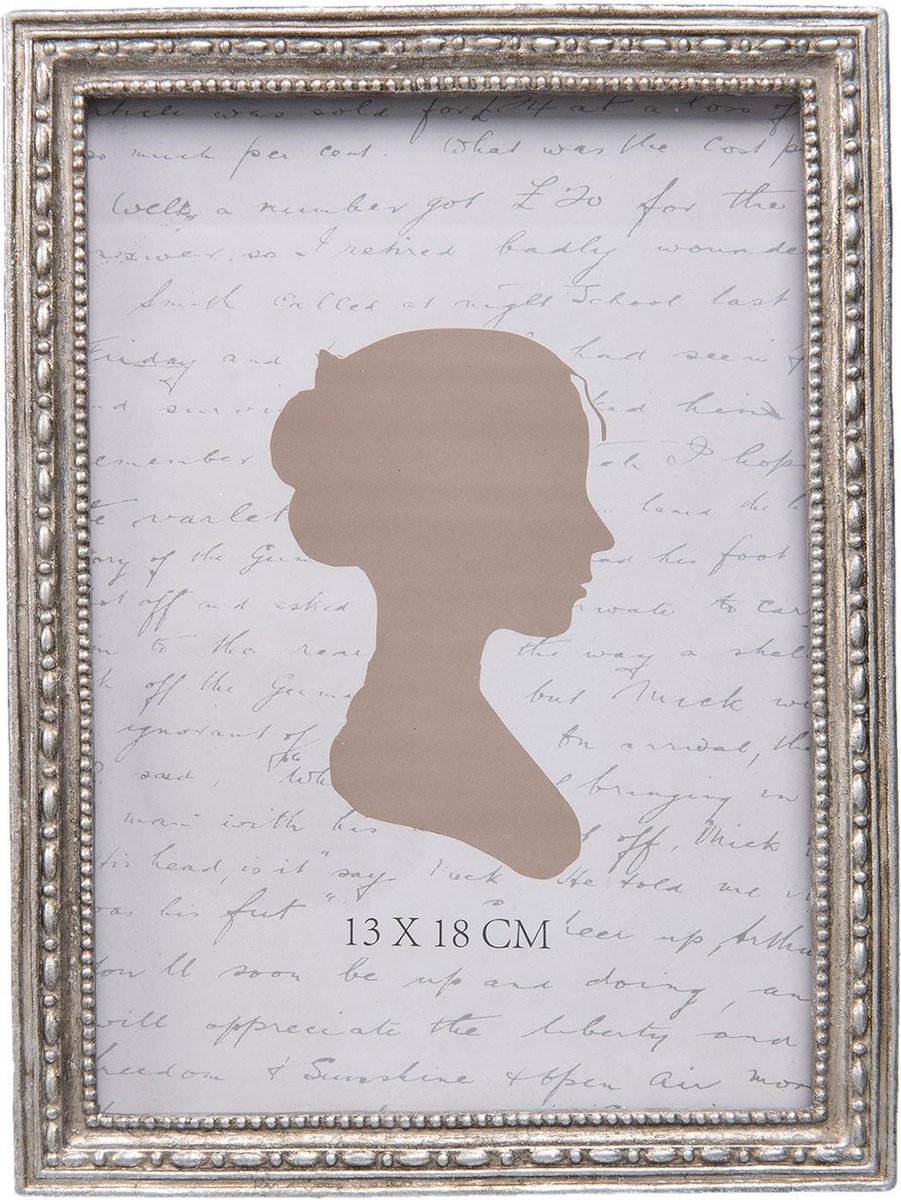 article was sold for £4 at a loss of
so much per cent. What was the cost p
Well, a number got £20 for the
answer, so I retired badly wounde
Smith called at night School last
Friday and had seen
nd survi ted him
emember ch I hop
te varlet heard the
ory of the Germ ad his foot
ot off and asked rivate to car
to the rear the way a shel
k off the Germa but Mick w
ignorant of On arrival, the
I said, "Wh bringing in
man with his off, Mick
His head, is it" say. Mick He told me
was his fut" 13 X 18 CM Cheer up, Arthu
You'll soon be up and doing, an
will appreciate the liberty and
freedom & Sunshine & open Air mor